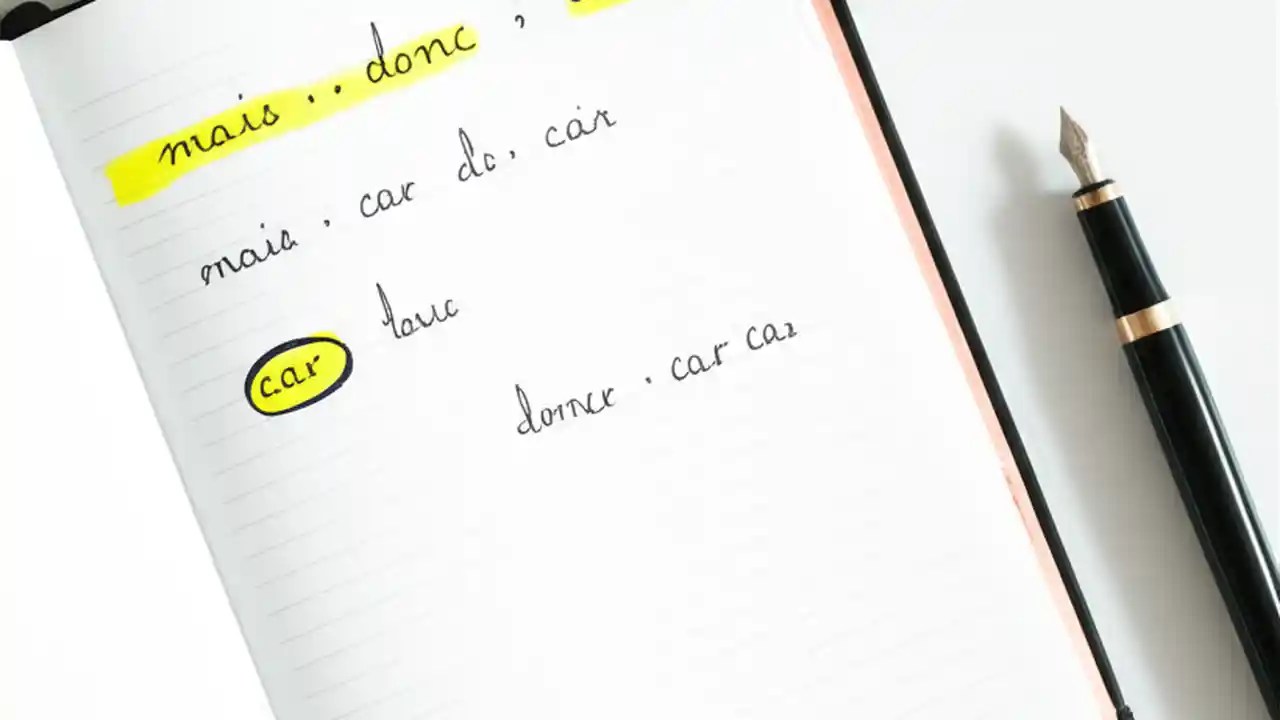 mais . . donc ,
mais . car do. car
car
donce . car caz